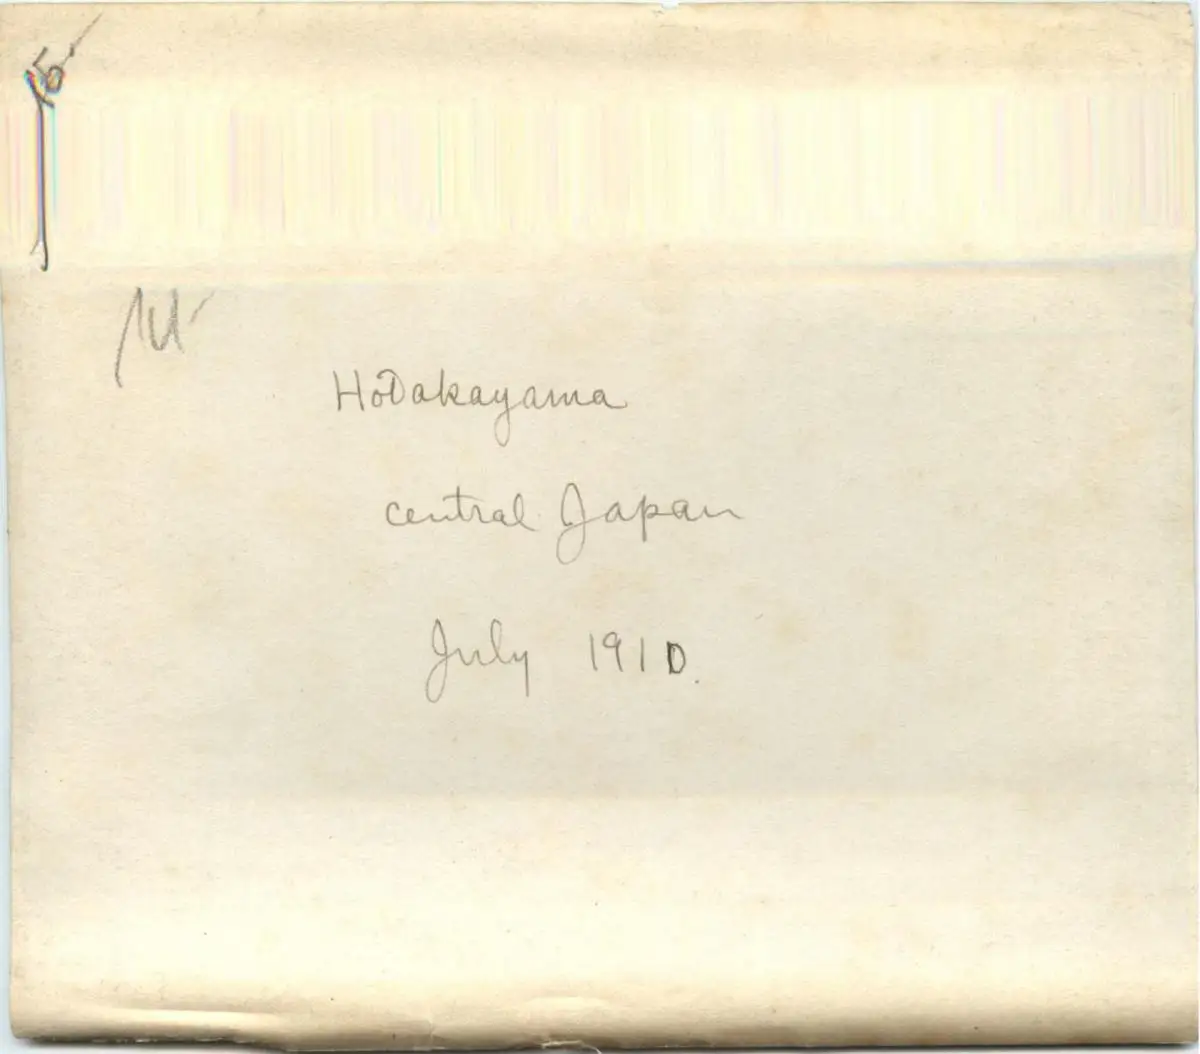 15
Hodakayama
central Japan
July 1910.